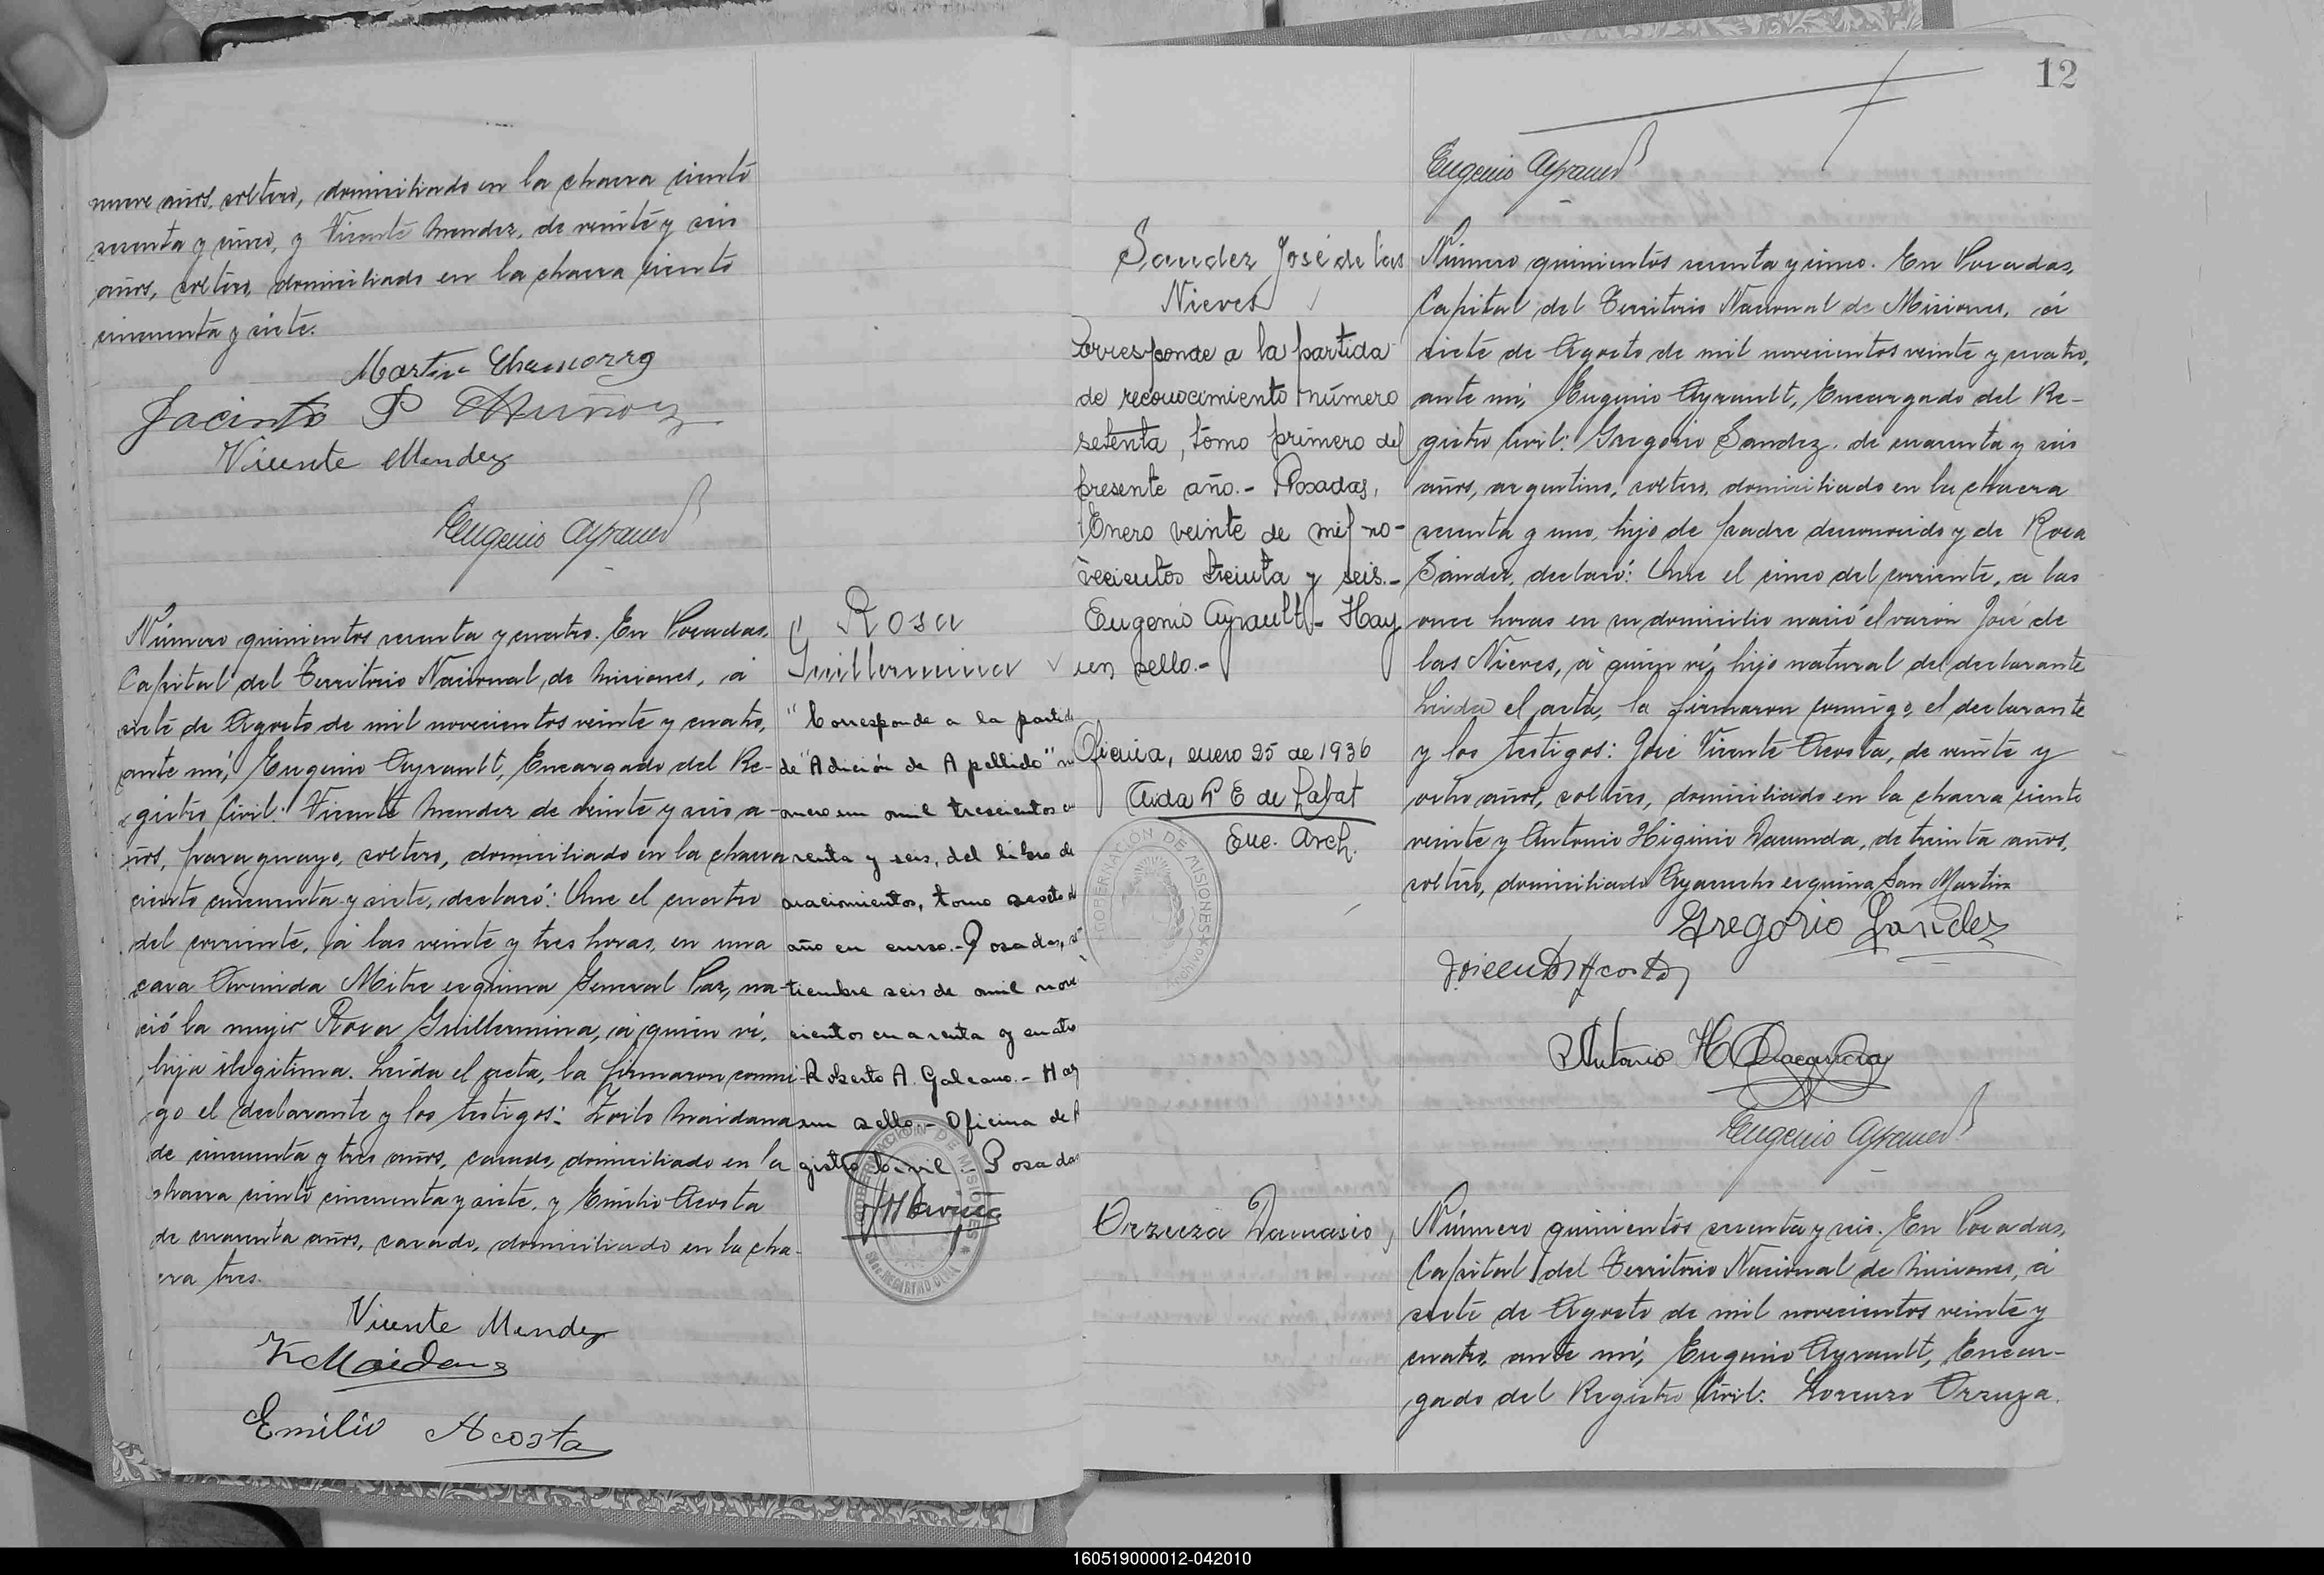 nueve años, soltero, domiciliado en la chacra ciento
sesenta y cinco, y Vicente Mendez, de veinte y seis
años, soltero, domiciliado en la chacra ciento
cincuenta y siete.
Martin Chamorro
Jacinto P Muñoz
Vicente Mendez
Eugenio Ayrault
Número quinientos sesenta y cuatro. En Posadas,
Capital del Territorio Nacional de Misiones, á
siete de Agosto de mil novecientos veinte y cuatro,
ante mí, Eugenio Ayrault, Encargado del Re-
gistro Civil: Vicente Mendez de veinte y seis a-
ños, paraguayo, soltero, domiciliado en la chacra
ciento cincuenta y siete, declaró: Que el cuatro
del corriente, á las veinte y tres horas, en una
casa Avenida Mitre esquina General Paz, na-
ció la mujer Rosa Guillermina, á quien ví,
hija ilegítima. Leída el acta, la firmaron conmi-
go el declarante y los testigos: Zoilo Maidana
de cincuenta y tres años, casado, domiciliado en la
chacra ciento cincuenta y siete, y Emilio Acosta
de cuarenta años, casado, domiciliado en la cha-
cra tres.
Vicente Mendez
Z Maidana
Emilio Acosta
Rosa
Guillermina
"Corresponde a la partida
de "Adición de Apellido" nú
mero un mil trescientos cua
renta y seis, del libro de
nacimientos, tomo sexto del
año en curso.- Posadas, se
tiembre seis de mil nove
cientos cuarenta y cuatro
Roberto A. Galeano.- Hay
un sello.- Oficina de R
gistro Civil.- Posadas
GOBERNACIÓN DE MISIONES
REGISTRO CIVIL
12
Eugenio Ayrault
Sandez José de las
Nieves
Corresponde a la partida
de reconocimiento número
setenta, tomo primero del
presente año.- Posadas,
Enero veinte de mil no-
vecientos treinta y seis.-
Eugenio Ayrault.- Hay
un sello.-
Oficina, enero 25 de 1936
Aida P E de Labat
Enc. Arch.
GOBERNACIÓN DE MISIONES
Número quinientos sesenta y cinco. En Posadas,
Capital del Territorio Nacional de Misiones, á
siete de Agosto de mil novecientos veinte y cuatro,
ante mí, Eugenio Ayrault, Encargado del Re-
gistro Civil: Gregorio Sandez, de cuarenta y seis
años, argentino, soltero, domiciliado en la chacra
sesenta y uno, hijo de padre desconocido y de Rosa
Sandez, declaró: Que el cinco del corriente, a las
once horas en su domicilio nació el varón José de
las Nieves, á quien ví, hijo natural del declarante
Leída el acta, la firmaron conmigo, el declarante
y los testigos: José Vicente Acosta, de veinte y
ocho años, soltero, domiciliado en la chacra ciento
veinte y Antonio Higinio Dacunda, de treinta años,
soltero, domiciliado Ayacucho esquina San Martin
Gregorio Sandez
Antonio H Dacunda
Eugenio Ayrault
Orzuza Damasio,
Número quinientos sesenta y seis. En Posadas,
Capital del Territorio Nacional de Misiones, á
siete de Agosto de mil novecientos veinte y
cuatro, ante mí, Eugenio Ayrault, Encar-
gado del Registro Civil: Lorenzo Orzuza.
160519000012-042010